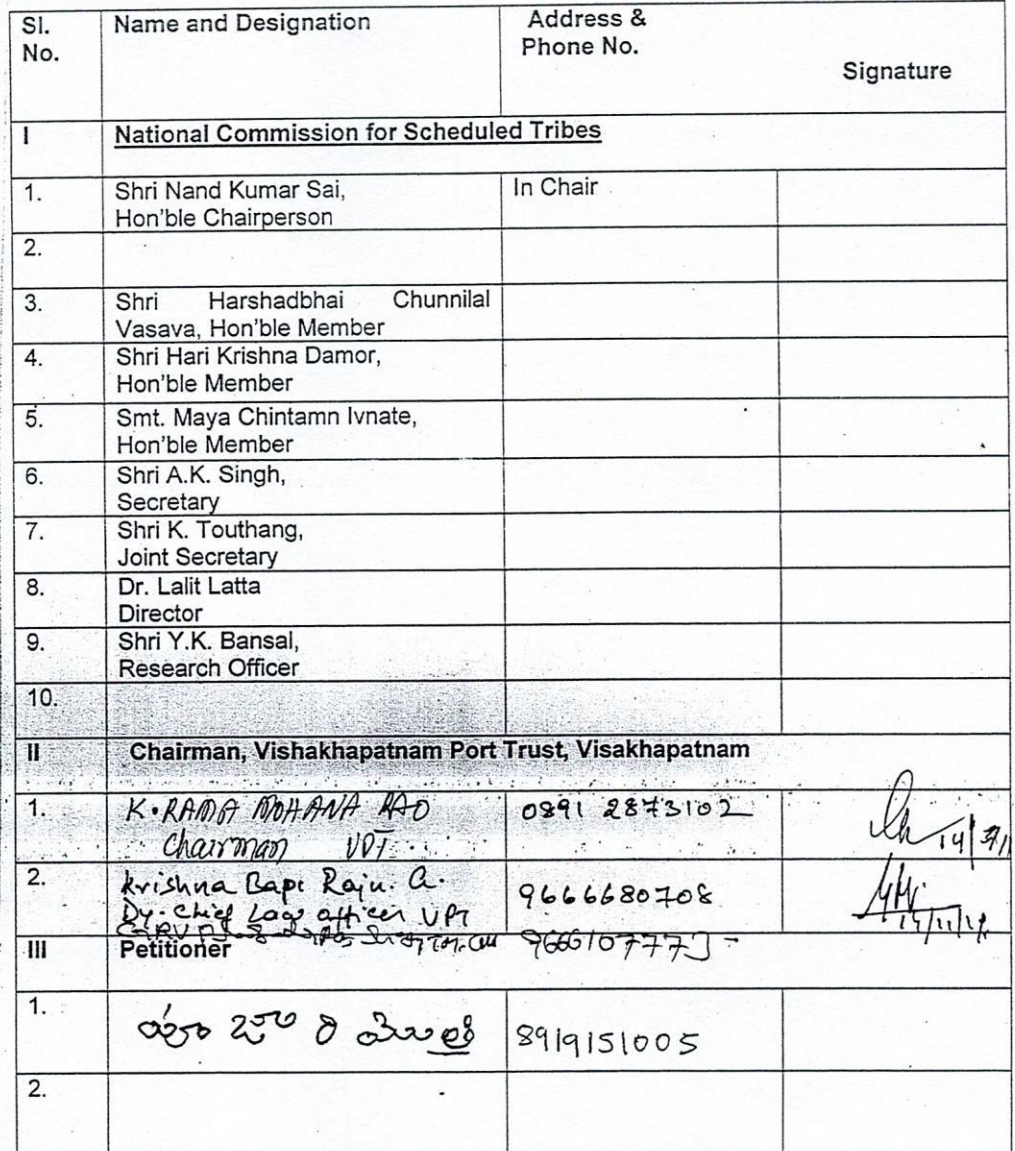 Sl. No. Name and Designation Address & Phone No. Signature
I National Commission for Scheduled Tribes
1. Shri Nand Kumar Sai, In Chair
Hon'ble Chairperson
2.
3. Shri Harshadbhai Chunnilal
Vasava, Hon'ble Member
4. Shri Hari Krishna Damor,
Hon'ble Member
5. Smt. Maya Chintamn Ivnate,
Hon'ble Member
6. Shri A.K. Singh,
Secretary
7. Shri K. Touthang,
Joint Secretary
8. Dr. Lalit Latta
Director
9. Shri Y.K. Bansal,
Research Officer
10.
II Chairman, Vishakhapatnam Port Trust, Visakhapatnam
1. K. RAMA MOHANA RAO 0891 2873102
Chairman VPT
2. Krishna Bapi Raju. G. 9666680708
Dy. Chief Law officer VPT
III Petitioner
1. 8919151005
2.